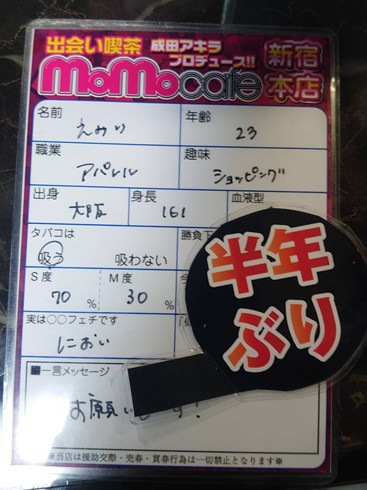 出会い喫茶 成田アキラ
プロデュース!!
MoMocafe 新宿
本店
名前 えみり 年齢 23
職業 アパレル 趣味 ショッピング
出身 大阪 身長 161 血液型
タバコは 吸う 吸わない 勝負下
S度 70 % M度 30 % 今
実は○○フェチです におい
半年
ぶり
■一言メッセージ
お願いします!
※当店は援助交際・売春・買春行為は一切禁止となります※